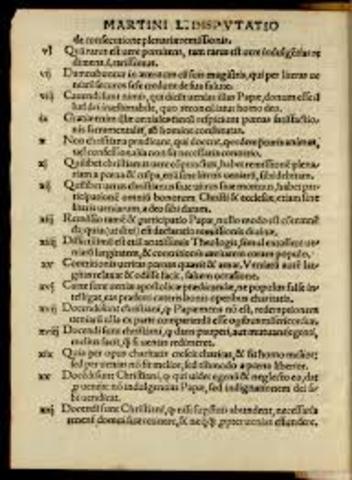 MARTINI L. DISPVTATIO
de consecutione plenariæ remissionis.
vj Quā rarus est vere pœnitens, tam rarus est vere indulgētias re
dimens, i. rarissimus.
vij Damnabuntur in æternum cū suis magistris, qui per literas ve
niarū securos sese credunt de sua salute.
viij Cauendi sunt nimis, qui dicūt venias illas Papæ, donum esse il
lud dei inestimabile, quo reconciliatur homo deo.
ix Gratiæ enim illæ veniales tantū respiciunt pœnas satisfactio
nis sacramentalis, ab homine constitutas.
x Non christiana prædicant, qui docent, quod redempturis animas,
vel confessionalia non sit necessaria contritio.
xj Quilibet christianus vere cōpunctus, habet remissionē plena
riam a pœna & culpa, etiā sine literis veniarū, sibi debitam.
xij Quilibet verus christianus siue viuus siue mortuus, habet par
ticipationē omniū bonorum Christi & ecclesiæ, etiam sine
literis veniarum, a deo sibi datam.
xiij Remissio tamē & participatio Papæ, nullo modo est cōtemnē
da, quia (ut dixi) est declaratio remissionis diuinæ.
xiiij Difficillimū est etiā doctissimis Theologis, simul extollere ve
niarū largitatem, & contritionis veritatem coram populo.
xv Contritionis veritas pœnas quærit & amat, Veniarū autē lar
gitas relaxat & odisse facit, saltem occasione.
xvj Caute sunt veniæ apostolicæ prædicandæ, ne populus false in
telligat, eas præferri cæteris bonis operibus charitatis.
xvij Docendi sunt christiani, q Papæ mens nō est, redemptionem
veniarū vlla ex parte comparandā esse operibus misericordiæ.
xviij Docendi sunt christiani, q dans pauperi, aut mutuans egenti,
melius facit, q si venias redimeret.
xix Quia per opus charitatis crescit charitas, & fit homo melior;
sed per venias nō fit melior, sed tīmmodo a pœna liberior.
xx Docēdi sunt Christiani, q qui videt egenū & neglecto eo, dat
p venijs nō indulgentias Papæ, sed indignationem dei si
bi vendicat.
xxj Docendi sunt Christiani, q nisi supfluis abundent, necessaria
tenent domui suæ retinere, & neq̄ ppter venias effundere.